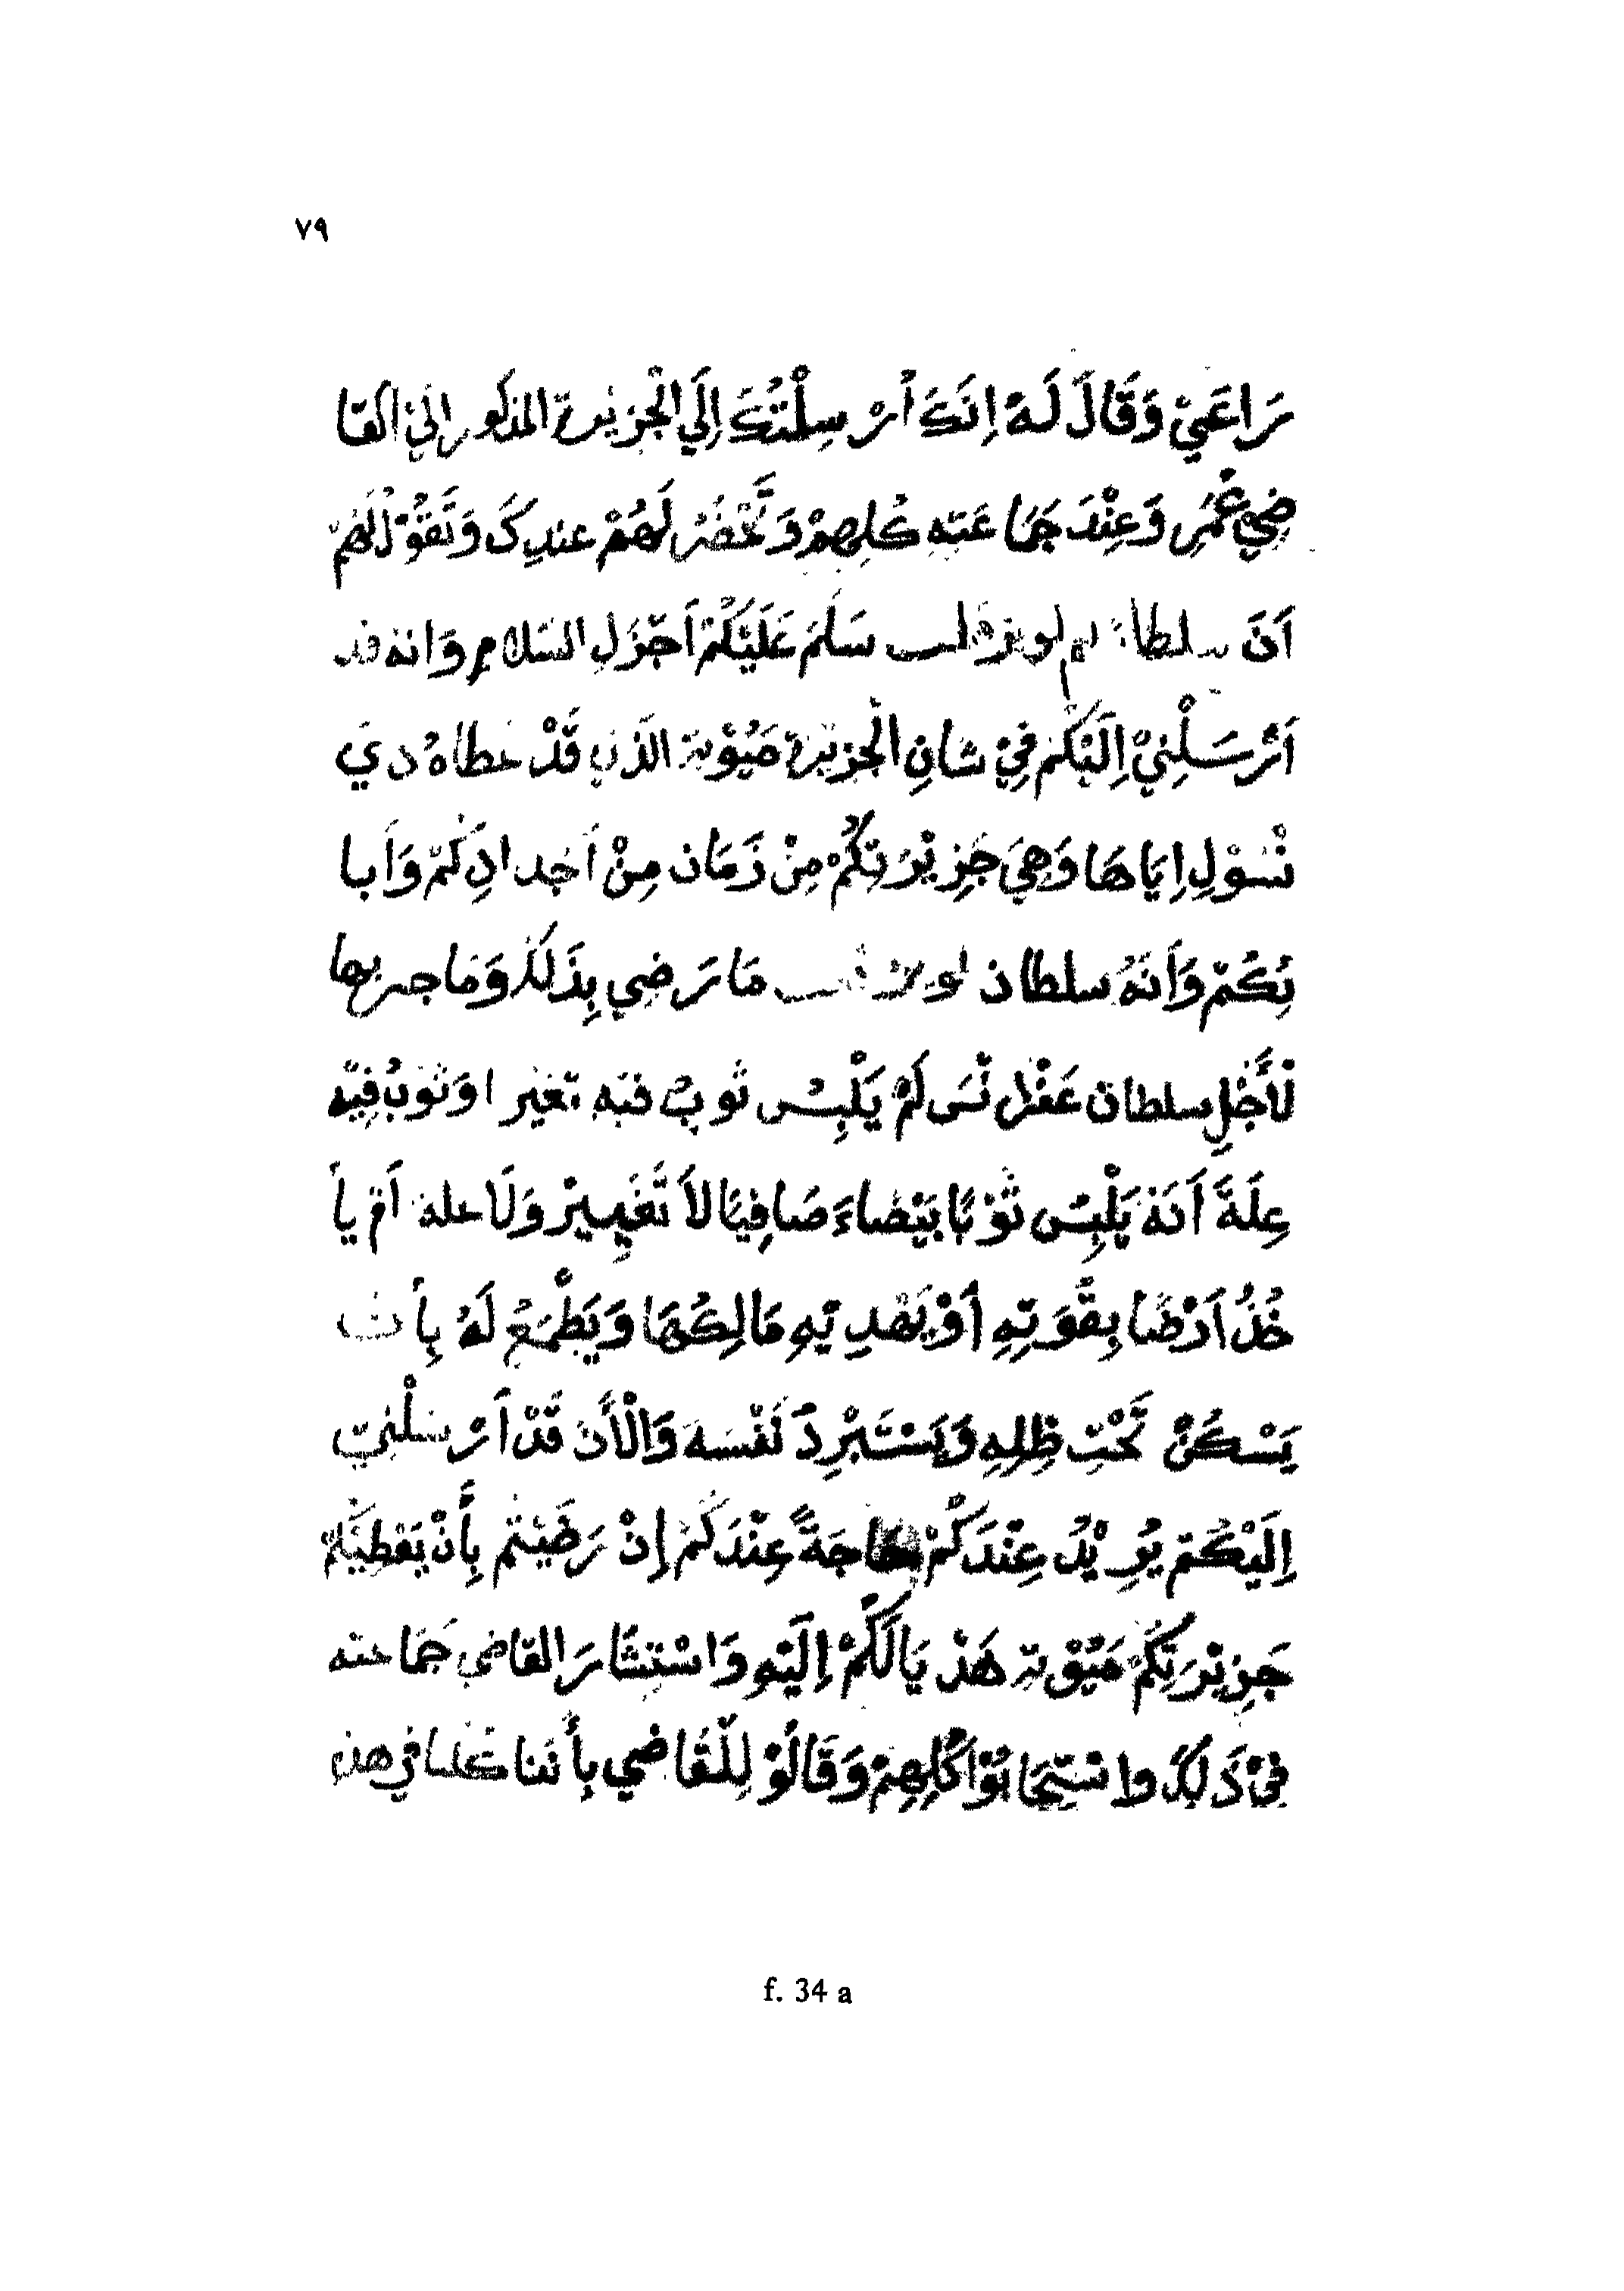 ٧٩
رَاعَيْ وَقَالَ لَهُ اِنَكَ اُرْسِلْتُكَ اِلَي الْجزيرة المذكور اليٰ القا
ضِي عُمَرِ وَعِنْدَ جَمَاعَتِهِ كُلِهِمْ وَتَحْضَرُ لَهُمْ عندِكَ وَتَقُوْلُ لَهُمْ
اَنَ سلطان سَلَمَ عَلَيْكُمْ اَجْزَلِ السَلام وَانه قد
اَرْسَلَنِيْ اِلَيْكُمْ فِيْ شانِ الْجزيرة مَيُوْتة الذَي قَدْ خطاهُ دي
نْسُوْلِ اِيَاهَا وَهِيَ جَزِيْرَتِكُمْ مِنْ زَمَان مِنْ اَجْدادِكُمْ وَاَبا
ئِكُمْ وَاَنَهُ سلطان مَا رَضِي بِذَلِكَ وَمَا جربها
لأَجْلِ سلطان لَمْ يَلْبِسْ ثوبٌ فيه تغير او ثَوْبُ فِيْه
عِلَةَ اَنَهُ يَلْبِسُ ثَوْبًا بَيْضاءَ صَافِيًا لاَ تَغَيِيرْ وَلَا علة اَمْ يأ
خُذُ اَرْضًا بِقُوَتِهِ اَوْ يَهْدِيْهِ مَالِكُهَا وَيَطْمَعُ لَهُ بِأن
يَسْكَنُ تَحْتِ ظِلِهِ وَيَسْتَبْرِدَ نَفْسَهُ وَالْأَنَ قَدْ اَرْسَلْنِيْ
اِلَيْكُمْ يُرِيْدُ عِنْدَكُمْ حَاجَةً عِنْدَكُمْ اِنْ رَضَيْتُم بِأَنْ يَعْطِيَكُمْ
جَزِيْرَتِكُمْ مَيُوْتة هَذْيَالَكُمْ اِلَيْهِ وَاسْتِشَارَ القاضي جَمَاعته
فِيْ ذَلِكَ واسْتِجَابُوْا كُلِهِمْ وَقَالَوْ لِلْقَاضِي بِأَننا كلنا في هذ
f. 34 a